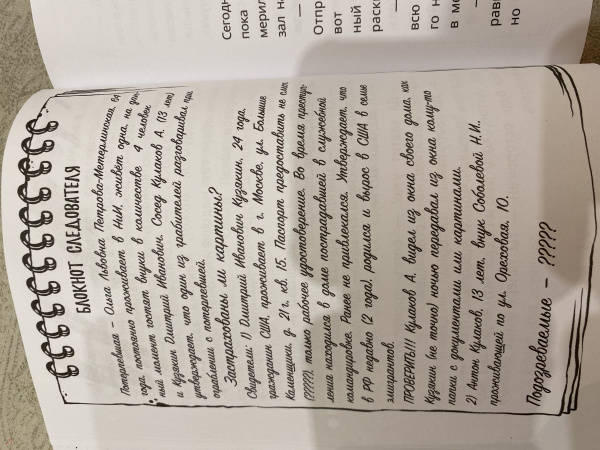 БЛОКНОТ СЛЕДОВАТЕЛЯ
Потерпевшая – Ольга Львовна Петрова-Метерлинская,
года, постоянно проживает в Н.И.М., живет одна, на дан-
ный момент гостят внуки в количестве 4 человек
и Кузякин Дмитрий Иванович. Сосед Кулаков А. (13 лет)
утверждает, что один из грабителей разговаривал при
ограблении с потерпевшей.
Застрахованы ли картины?
Свидетели: 1) Дмитрий Иванович Кузякин, 24 года,
гражданин США, проживает в г. Москве, ул. Большие
Каменщики, д. 21 г, кв. 15. Паспорт предоставить не смог
(?????), только рабочее удостоверение. Во время преступ-
ления находился в доме пострадавшей в служебной
командировке. Ранее не привлекался. Утверждает, что
в РФ недавно (2 года), родился и вырос в США в семье
эмигрантов.
ПРОВЕРИТЬ!!! Кулаков А. видел из окна своего дома, как
Кузякин (не точно) ночью передавал из окна кому-то
папки с документами или картинами.
2) Антон Кулаков, 13 лет, внук Соболевой Н.И.,
проживающей по ул. Ореховая, 10.
Подозреваемые – ?????
Сегод
пока
мерил
зал н
—
Отпр
вот
ный
раск
—
всю
го н
в ме
—
равн
но